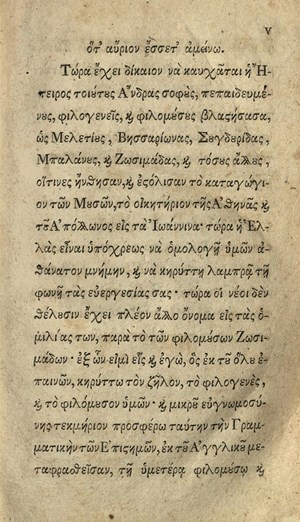 v
ὅτ' αὔριον ἔσσετ' ἀμείνω.
Τώρα ἔχει δίκαιον νὰ καυχᾶται ἡ Ἤ-
πειρος τοιούτους Ἄνδρας σοφούς, πεπαιδευμέ-
νους, φιλογενεῖς, καὶ φιλομούσους βλαστήσασα,
ὡς Μελετίους, Βησσαρίωνας, Σουγδουρίδας,
Μπαλάνους, καὶ Ζωσιμάδας, καὶ τόσους ἄλλους,
οἵτινες ἤνθησαν, καὶ ἐστόλισαν τὸ καταγώγι-
ον τῶν Μουσῶν, τὸ οἰκητήριον τῆς Ἀθηνᾶς καὶ
τοῦ Ἀπόλλωνος εἰς τὰ Ἰωάννινα· τώρα ἡ Ἑλ-
λὰς εἶναι ὑπόχρεως νὰ ὁμολογῇ ὑμῶν ἀ-
θάνατον μνήμην, καὶ νὰ κηρύττῃ λαμπρᾷ τῇ
φωνῇ τὰς εὐεργεσίας σας· τώρα οἱ νέοι δὲν
θέλουσιν ἔχει πλέον ἄλλο ὄνομα εἰς τὰς ὁ-
μιλίας των, παρὰ τὸ τῶν φιλομούσων Ζωσι-
μάδων· ἐξ ὧν εἰμὶ εἷς καὶ ἐγώ, ὃς ἐκ τοῦ ὅλου ἐ-
παινῶν, κηρύττω τὸν ζῆλον, τὸ φιλογενές,
καὶ τὸ φιλόμουσον ὑμῶν· καὶ μικροῦ εὐγνωμοσύ-
νης τεκμήριον προσφέρω ταύτην τὴν Γραμ-
ματικὴν τῶν Ἐπιστημῶν, ἐκ τοῦ Ἀγγλικοῦ με-
ταφρασθεῖσαν, τῇ ὑμετέρᾳ φιλομούσῳ καὶ